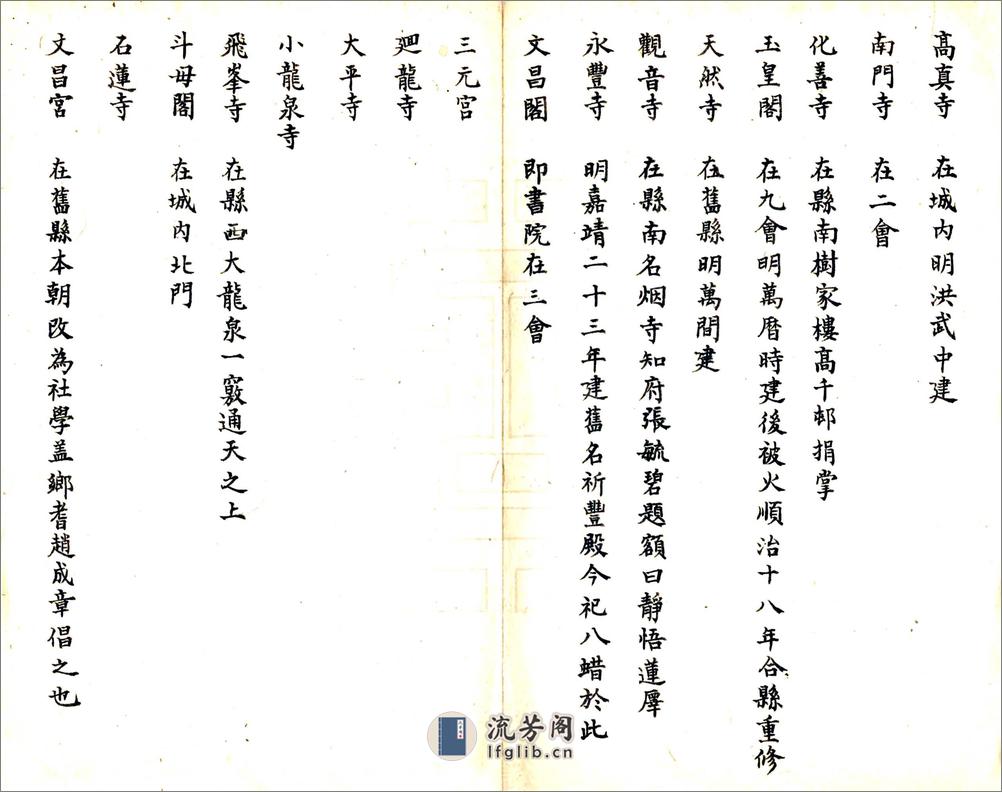 高真寺　在城內明洪武中建
南門寺　在二會
化善寺　在縣南樹家樓高千邨捐掌
玉皇閣　在九會明萬曆時建後被火順治十八年合縣重修
天然寺　在舊縣明萬間建
觀音寺　在縣南名烟寺知府張毓碧題額曰靜悟蓮犀
永豐寺　明嘉靖二十三年建舊名祈豐殿今祀八蜡於此
文昌閣　即書院在三會
三元宮
廻龍寺
大平寺
小龍泉寺
飛峯寺　在縣西大龍泉一竅通天之上
斗母閣　在城內北門
石蓮寺
文昌宮　在舊縣本朝改為社學盖鄉耆趙成章倡之也
流芳阁
lfglib.cn